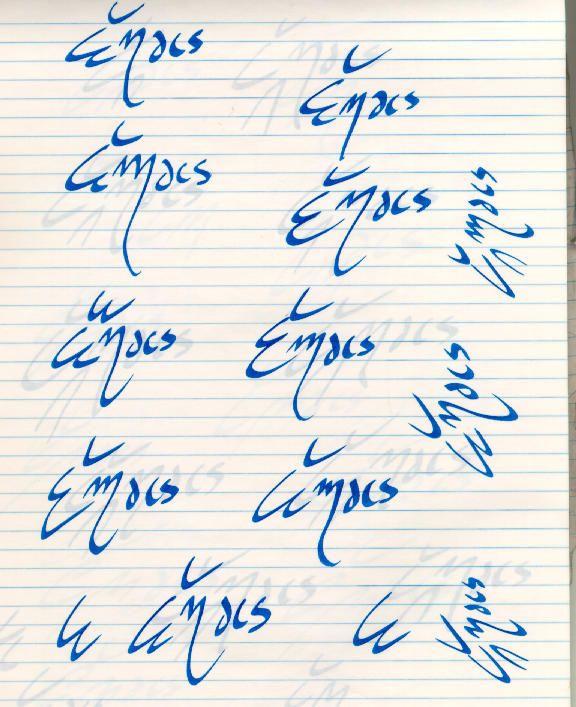 Emacs
Emacs
Emacs
Emacs
Emacs
Emacs
Emacs
Emacs
Emacs
Emacs
E Emacs E
Emacs